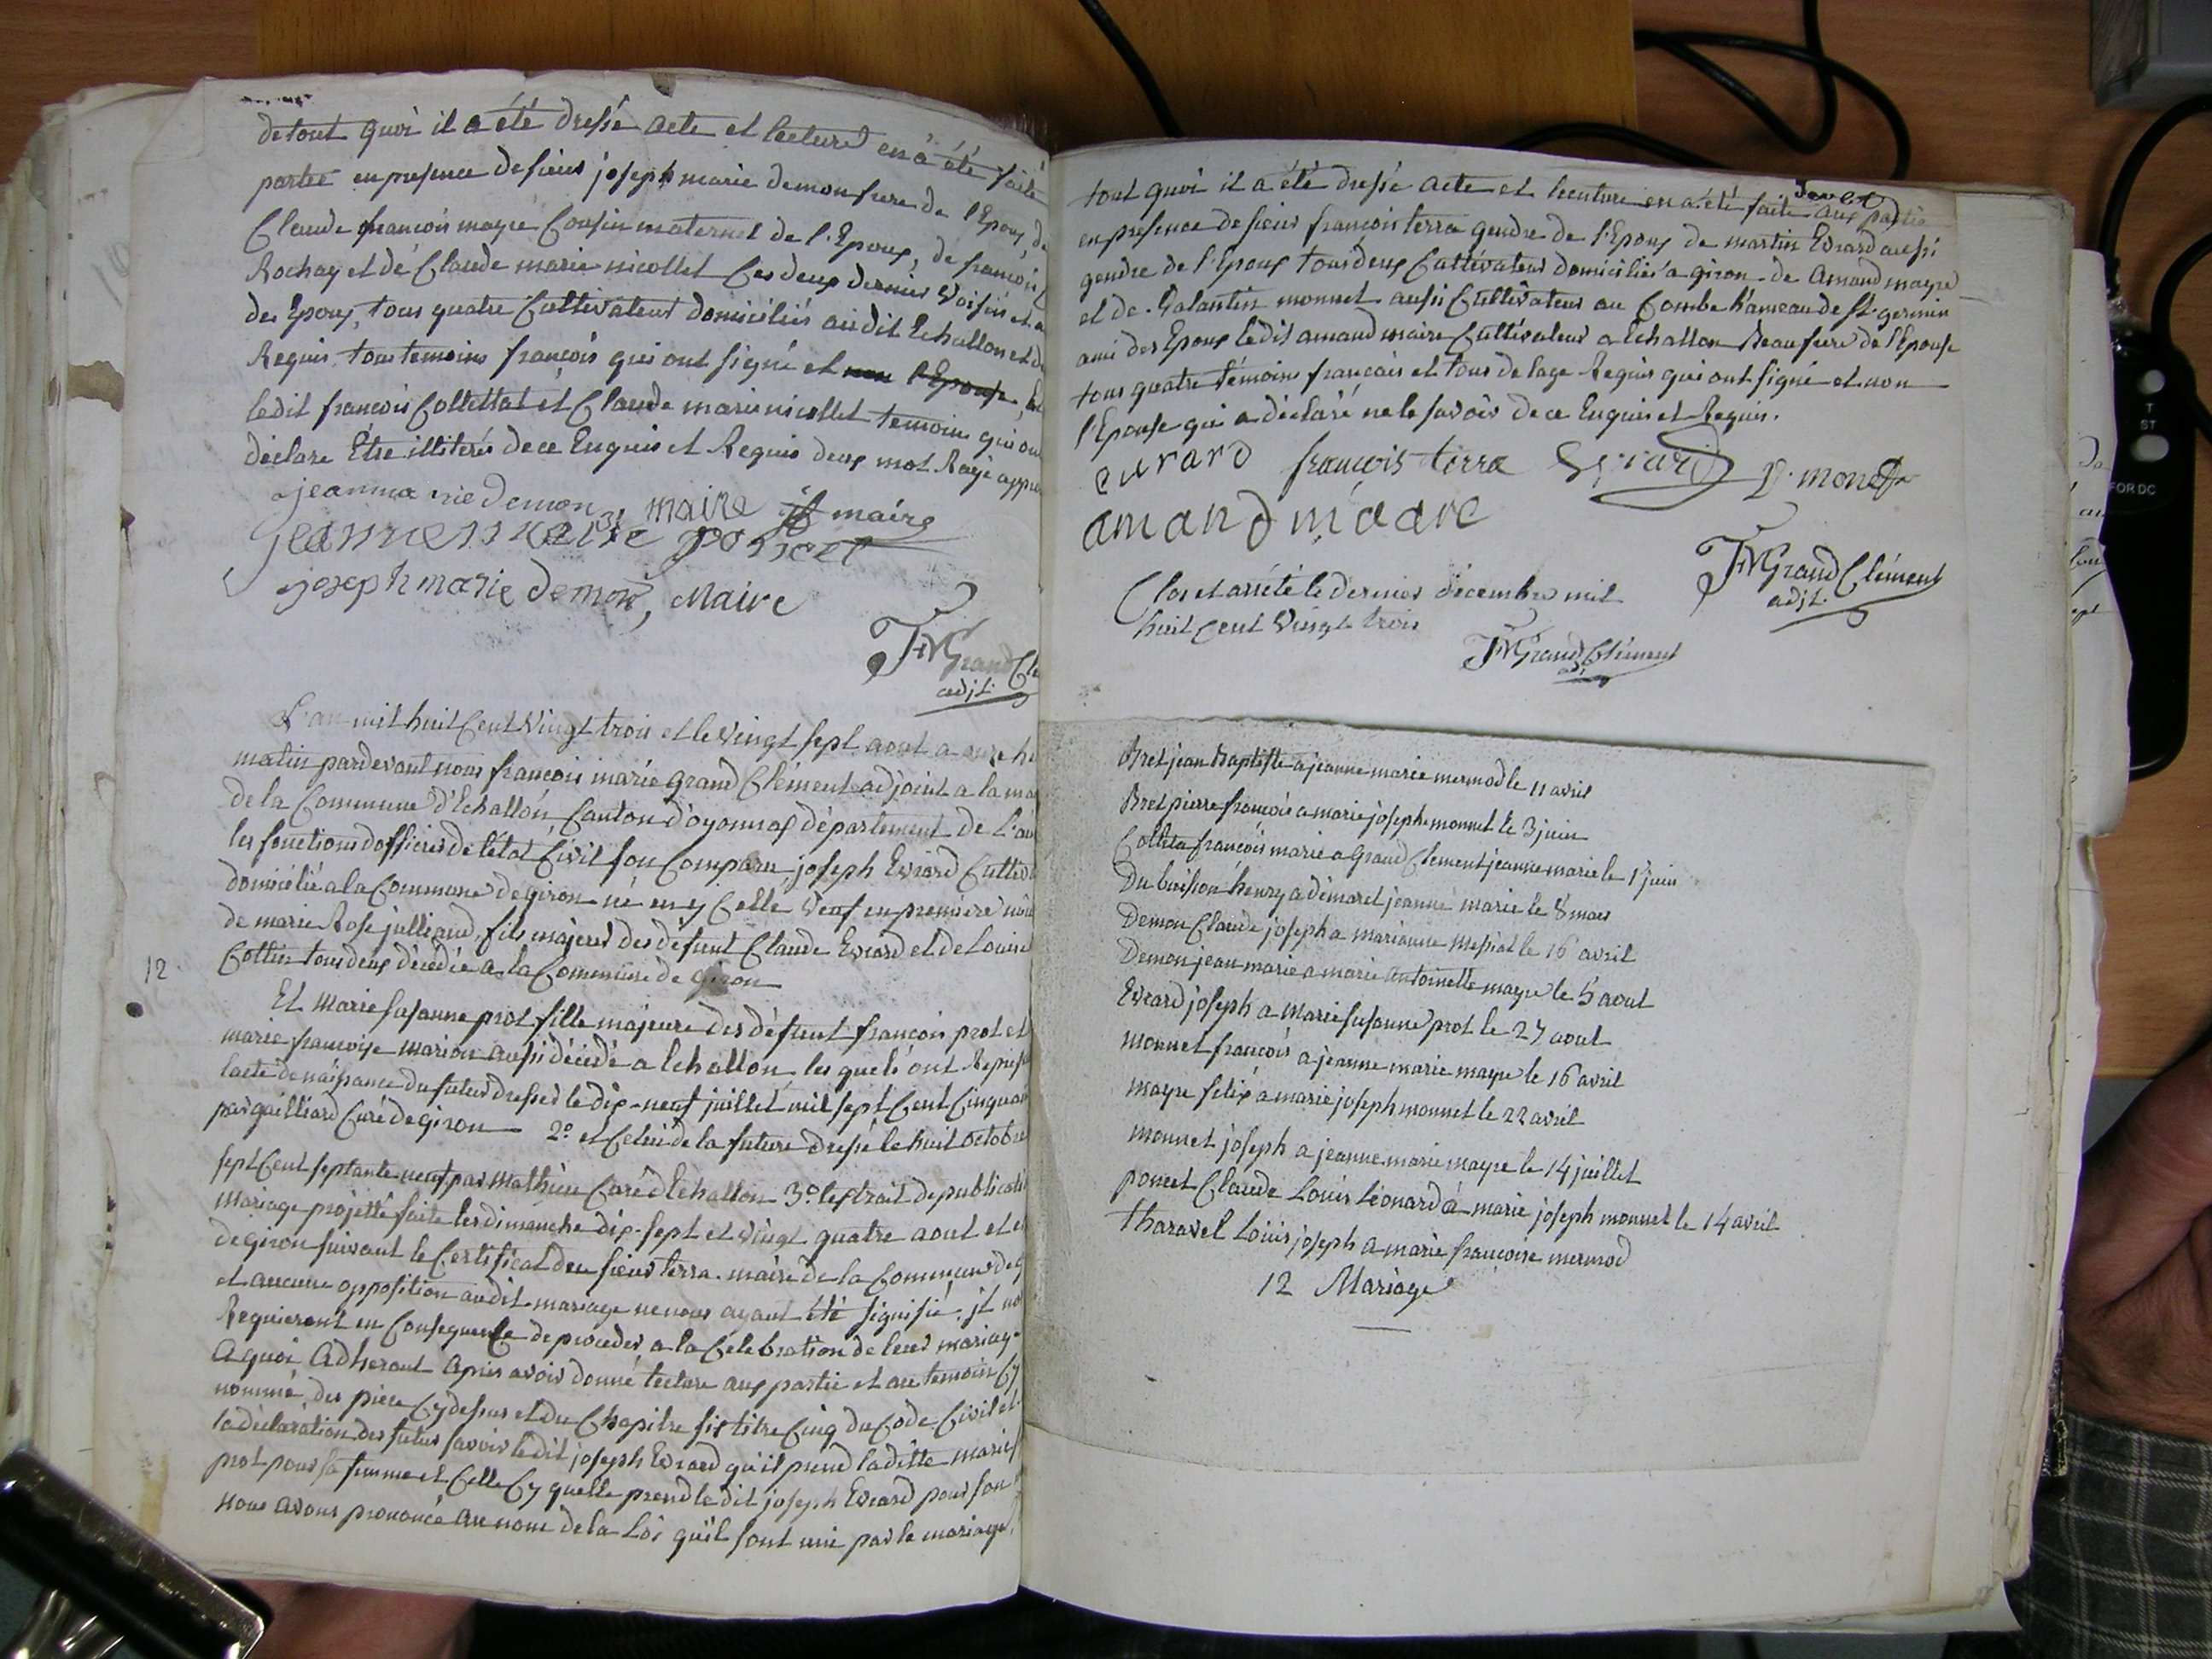 de tout quoi il a été dressé acte et lecture en a été faite
partee en presence de sieur joseph marie demon frere de l'Epoux de
Claude françois mayre Cousin maternel de l'Epoux, de françois
Rochay et de Claude marie nicollet Ces deux dernier Voisin et a
des Epoux, tous quatre Cultivateur domiciliés audit Echallon et de
Requis tous temoins françois qui ont signé et non l'Epouse,
ledit françois Collettat et Claude marie nicollet temoins qui on
déclare Etre illiterés de ce Enquis et Requis deux mot Rayé appr
jeanmarie demon, maire jf maire
joseph marie demon, Maire
JMGrand Cle
adjt.
L'an mil huit Cent Vingt trois et le Vingt sept aout a onze he
matin pardevant nous françois marie Grand Clément adjoint a la mai
de la Commune d'Echallon Canton d'oyonnax département de L'ain
les fonctions dofficier de létat Civil son Comparu joseph Evrard Cultiv
domicilié a la Commune de giron né en y Celle Veuf en premiere
de marie Rose julliand, fils majeur des defunt Claude Evrard et de Louise
Collin tous deux décedée a la Commune de giron
12
Et Marie susanne prot fille majeure des défunt françois prot et
marie françoise marion aussi décédé a Echallon, les quels ont
lacte de naissance du futur dressé le dix-neuf juillet mil sept Cent Cinquan
par gailliard Curé de giron — 2º et Celui de la future dressé le huit octobre
sept Cent septante neuf par Mathieu Curé d'Echallon 3º lextrait de publicati
Mariage projetté faite les dimanche dix-sept et vingt quatre aout et
de giron suivant le Certificat du sieur terra maire de la Commune de g
et aucune opposition audit mariage ne nous ayant été signifié. jl no
Requierent en Consequence de proceder a la Célebration de leur mariage
a quoi Adherant Apres avoir donné lecture aux partie et au temoin Cy
nommé des piece Cy dessus et du Chapitre six titre Cinq du Code Civil et
la déclaration des futur savoir ledit joseph Evrard qu'il prend laditte marie
prot pour sa femme et Celle Cy quelle prend le dit joseph Evrard pour son
nous avons prononcé au nom de la Loi qu'il sont uni par le mariage,
tout quoi il a été dressé acte et lecuture en a été faite aux partie
en presence de sieur françois terra gendre de l'Epoux de martin Evrard aussi
gendre de l'Epoux tous deux Cultivateur domiciliés a giron de Amand mayre
et de Valantin monnet aussi Cultivateur au Combe hameau de St. germin
ami des Epoux ledit amand maire Cultivateur a Echallon Beau frere de l'Epouse
tous quatre témoins français et tous de lage Requis qui ont signé et non
l'Epouse qui a déclaré ne le savoir de ce Enquis et Requis.
evrard françois terra Evrard V. monet
amand maare
JMGrand Clément
adjt.
Clos et arrété le dernier décembre mil
huit Cent Vingt trois
JMGrand Clément
adj
Bret jean Baptiste a jeanne marie mermod le 11 avril
Bret pierre françois a marie joseph monnet le 3 juin
Colleta françois marie a Grand Clement jeanne marie le 1er juin
Dubuisson henry a démaret jeanne marie le 8 mars
Demon Claude joseph a marianne Messiat le 16 avril
Demon jean marie a marie antoinette mayre le 5 aout
Evrard joseph a Marie susanne prot le 27 aout
Monnet françois a jeanne marie mayre le 16 avril
mayre felix a marie joseph monnet le 22 avril
Monnet joseph a jeanne marie mayre le 14 juillet
poncet Claude Louis Léonard à marie joseph monnet le 14 avril
Tharavel Louis joseph a marie françoise mermod
12 Mariage